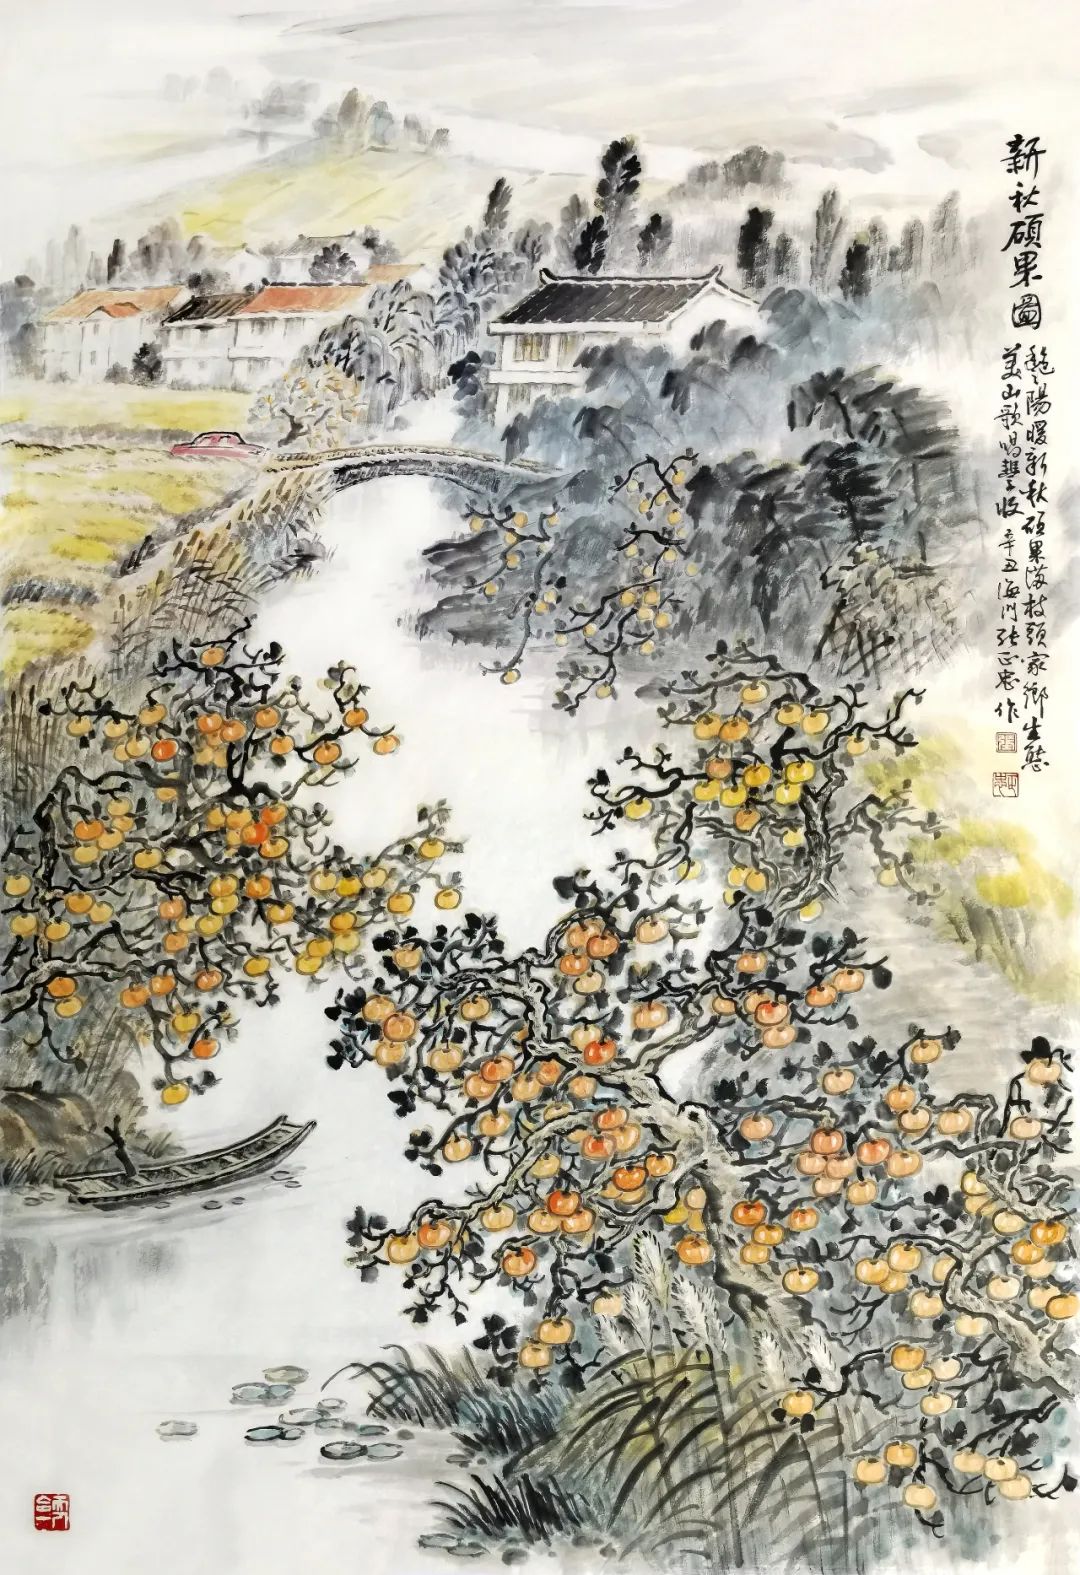 新秋碩果圖
艷陽暖新秋碩果滿枝頭家鄉生態
美山歌唱豐收辛丑海门张正忠作